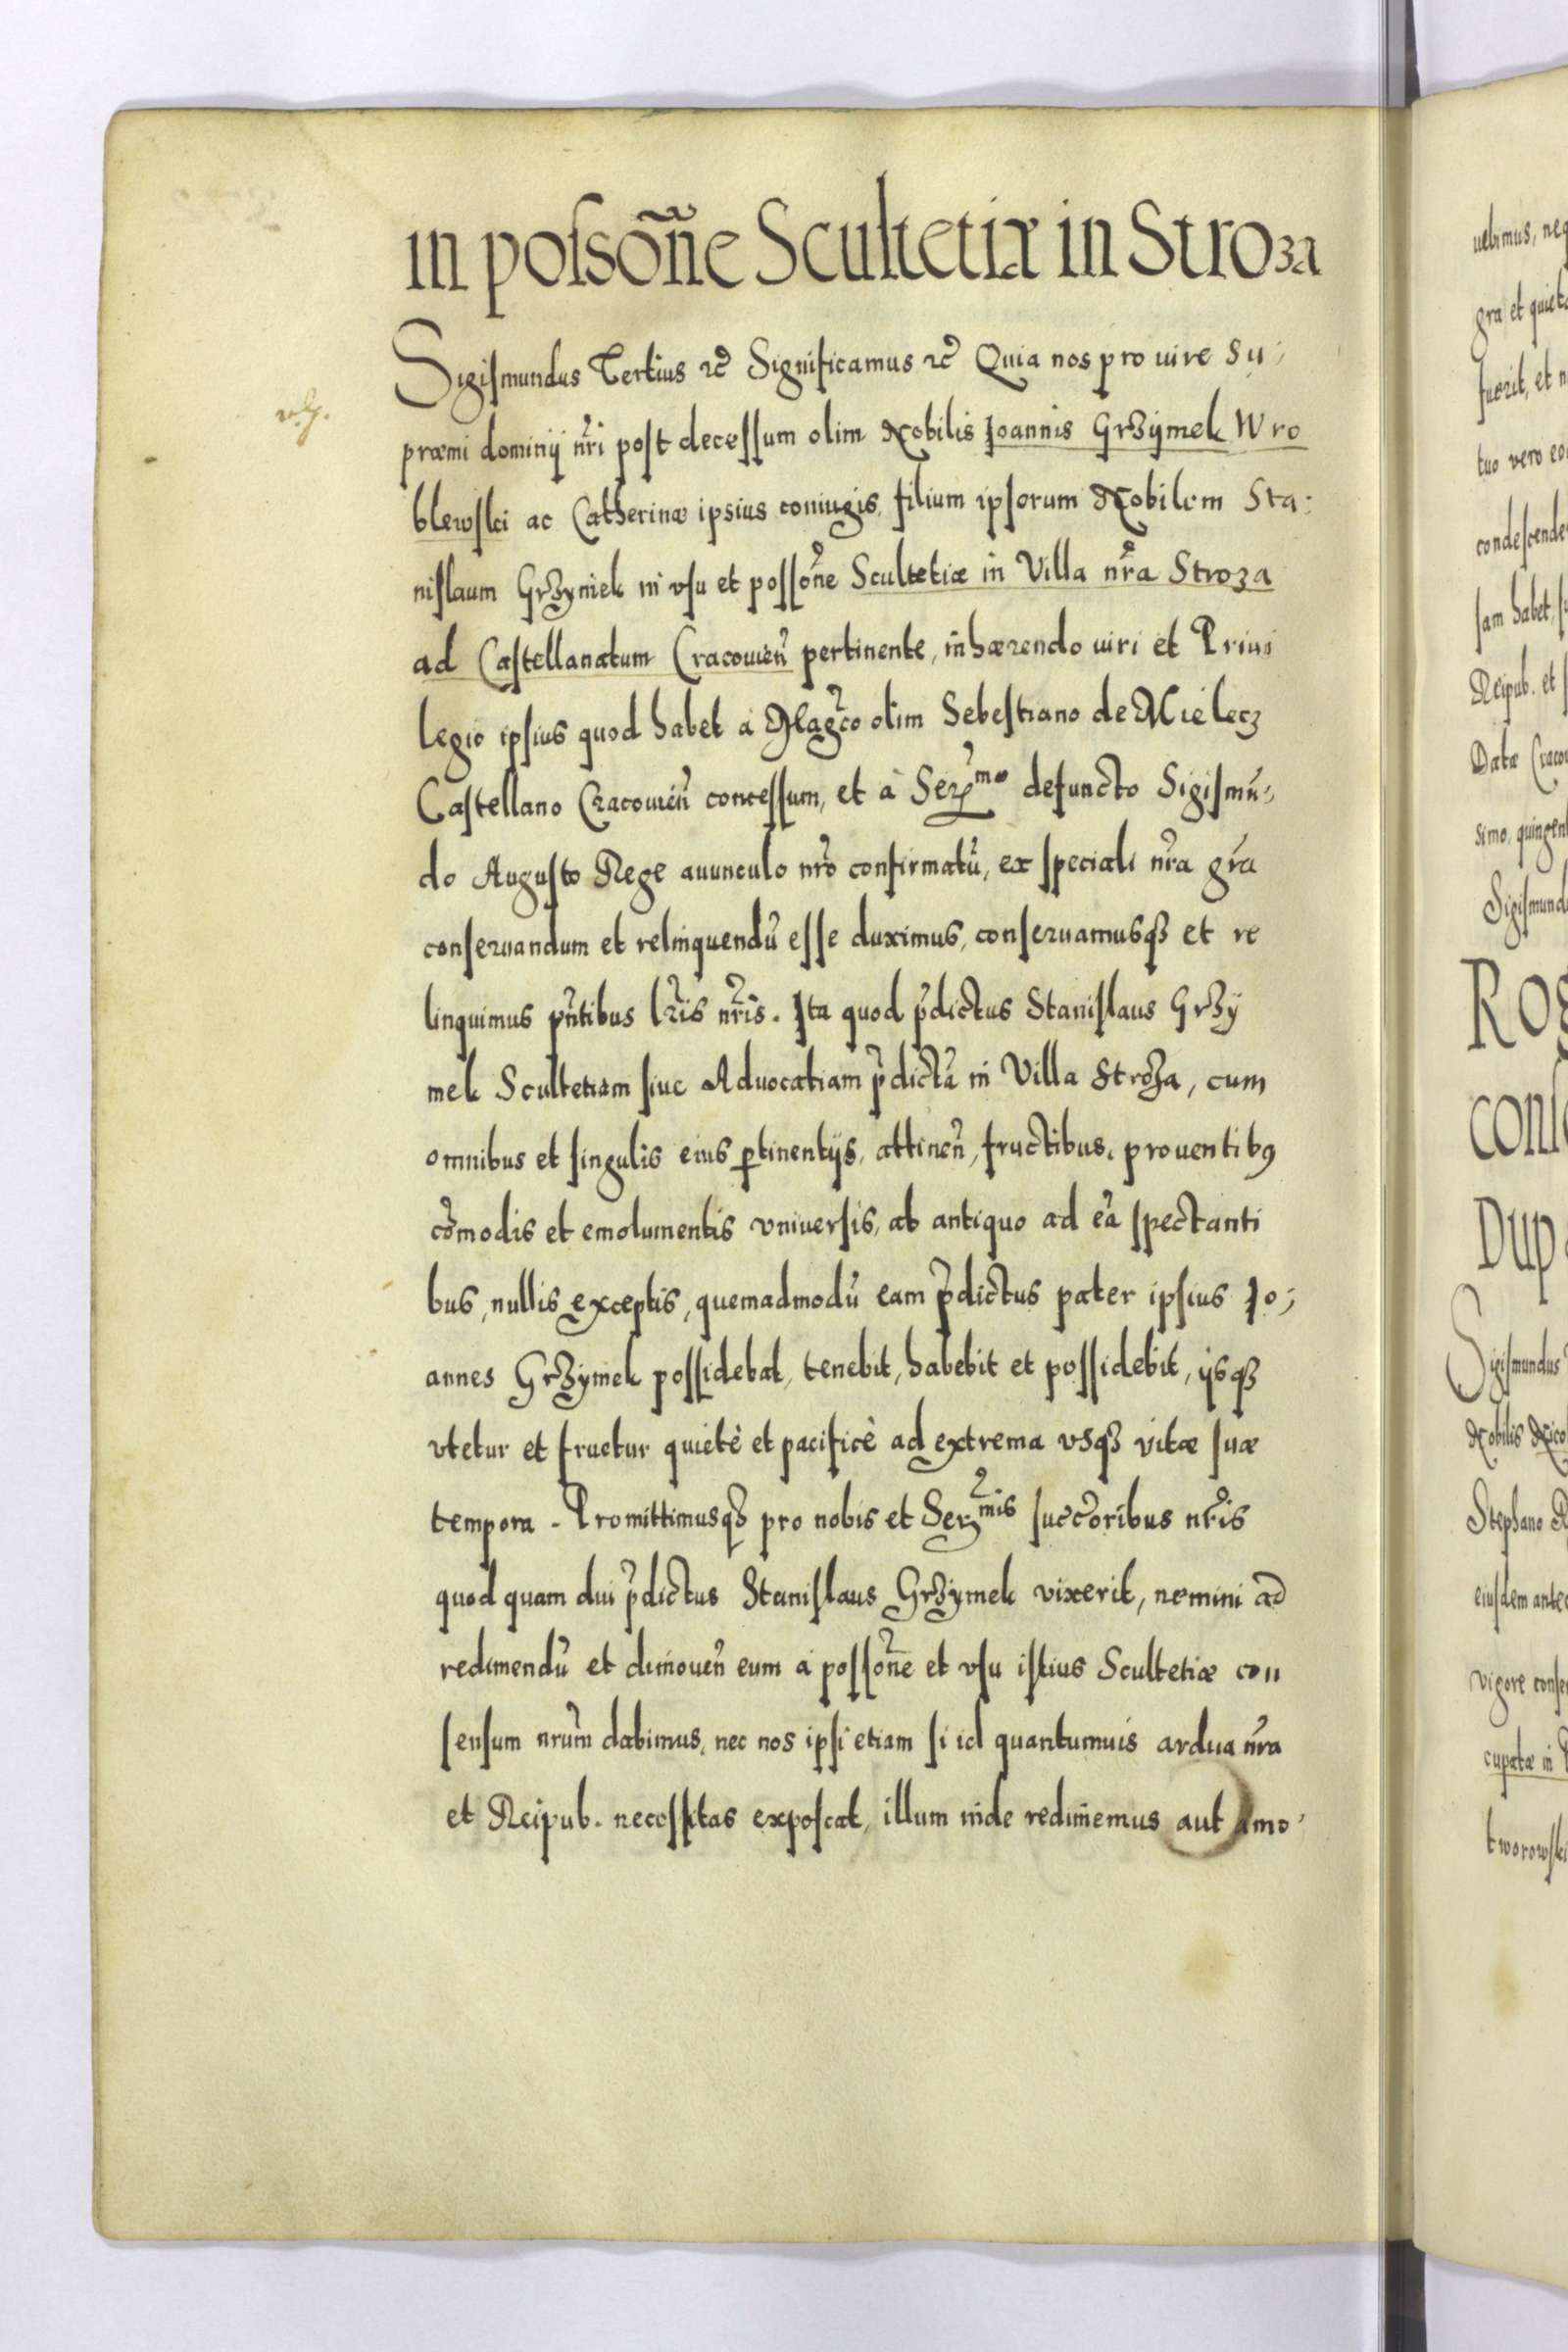 in possoñe Scultetiæ in Stroza
Sigismundus Tertius &c̃ Significamus &c̃ Quia nos pro iure Su:
præmi dominij nr̃i post decessum olim Nobilis Joannis Grzÿmek Wro
blewski ac Catherinæ ipsius coniugis, filium ipsorum Nobilem Sta:
nislaum Grzymek in vsu et possoñe Scultetiæ in Villa nr̃a Stroza
ad Castellanatum Cracouieñ pertinente, inhærendo iuri et Priui
legio ipsius quod habet à Mag̃co olim Sebestiano de Mielecz
Castellano Cracouieñ concessum, et à Ser.mo defuncto Sigismũ:
do Augusto Rege auunculo nr̃o confirmatũ, ex speciali nr̃a gr̃a
conseruandum et relinquendũ esse duximus, conseruamusq3 et re
linquimus pñtibus lr̃is nr̃is. Ita quod p̃dictus Stanislaus Grzÿ
mek Scultetiam siue Aduocatiam p̃dictã in Villa Stroza, cum
omnibus et singulis eius ꝑtinentijs, attineñ, fructibus, prouentibꝰ
cõmodis et emolumentis vniuersis, ab antiquo ad eã spectanti
bus, nullis exceptis, quemadmodũ eam p̃dictus pater ipsius Jo:
annes Grzÿmek possidebat, tenebit, habebit et possidebit, ijsq3
vtetur et fruetur quietè et pacificè ad extrema vsq3 vitæ suæ
tempora. Promittimusq3 pro nobis et Ser.mis succ̃oribus nr̃is
quod quam diu p̃dictus Stanislaus Grzÿmek vixerit, nemini ad
redimendũ et dimoueñ eum à possoñe et vsu istius Scultetiæ con
sensum nr̃um dabimus, nec nos ipsi etiam si id quantumuis ardua nr̃a
et Reipub. necessitas exposcat, illum inde redimemus aut amo:
uebimus, neq
gra et quiet
fuerit, et n
tuo vero eo
condescende
sam habet, s
Reipub. et
Datæ Craco
simo, quingent
Sigismund
Rog
cons
Dup
Sigismundus
Nobilis Nico
Stephano R
eiusdem antec
vigore conse
cupatæ in
tworowski